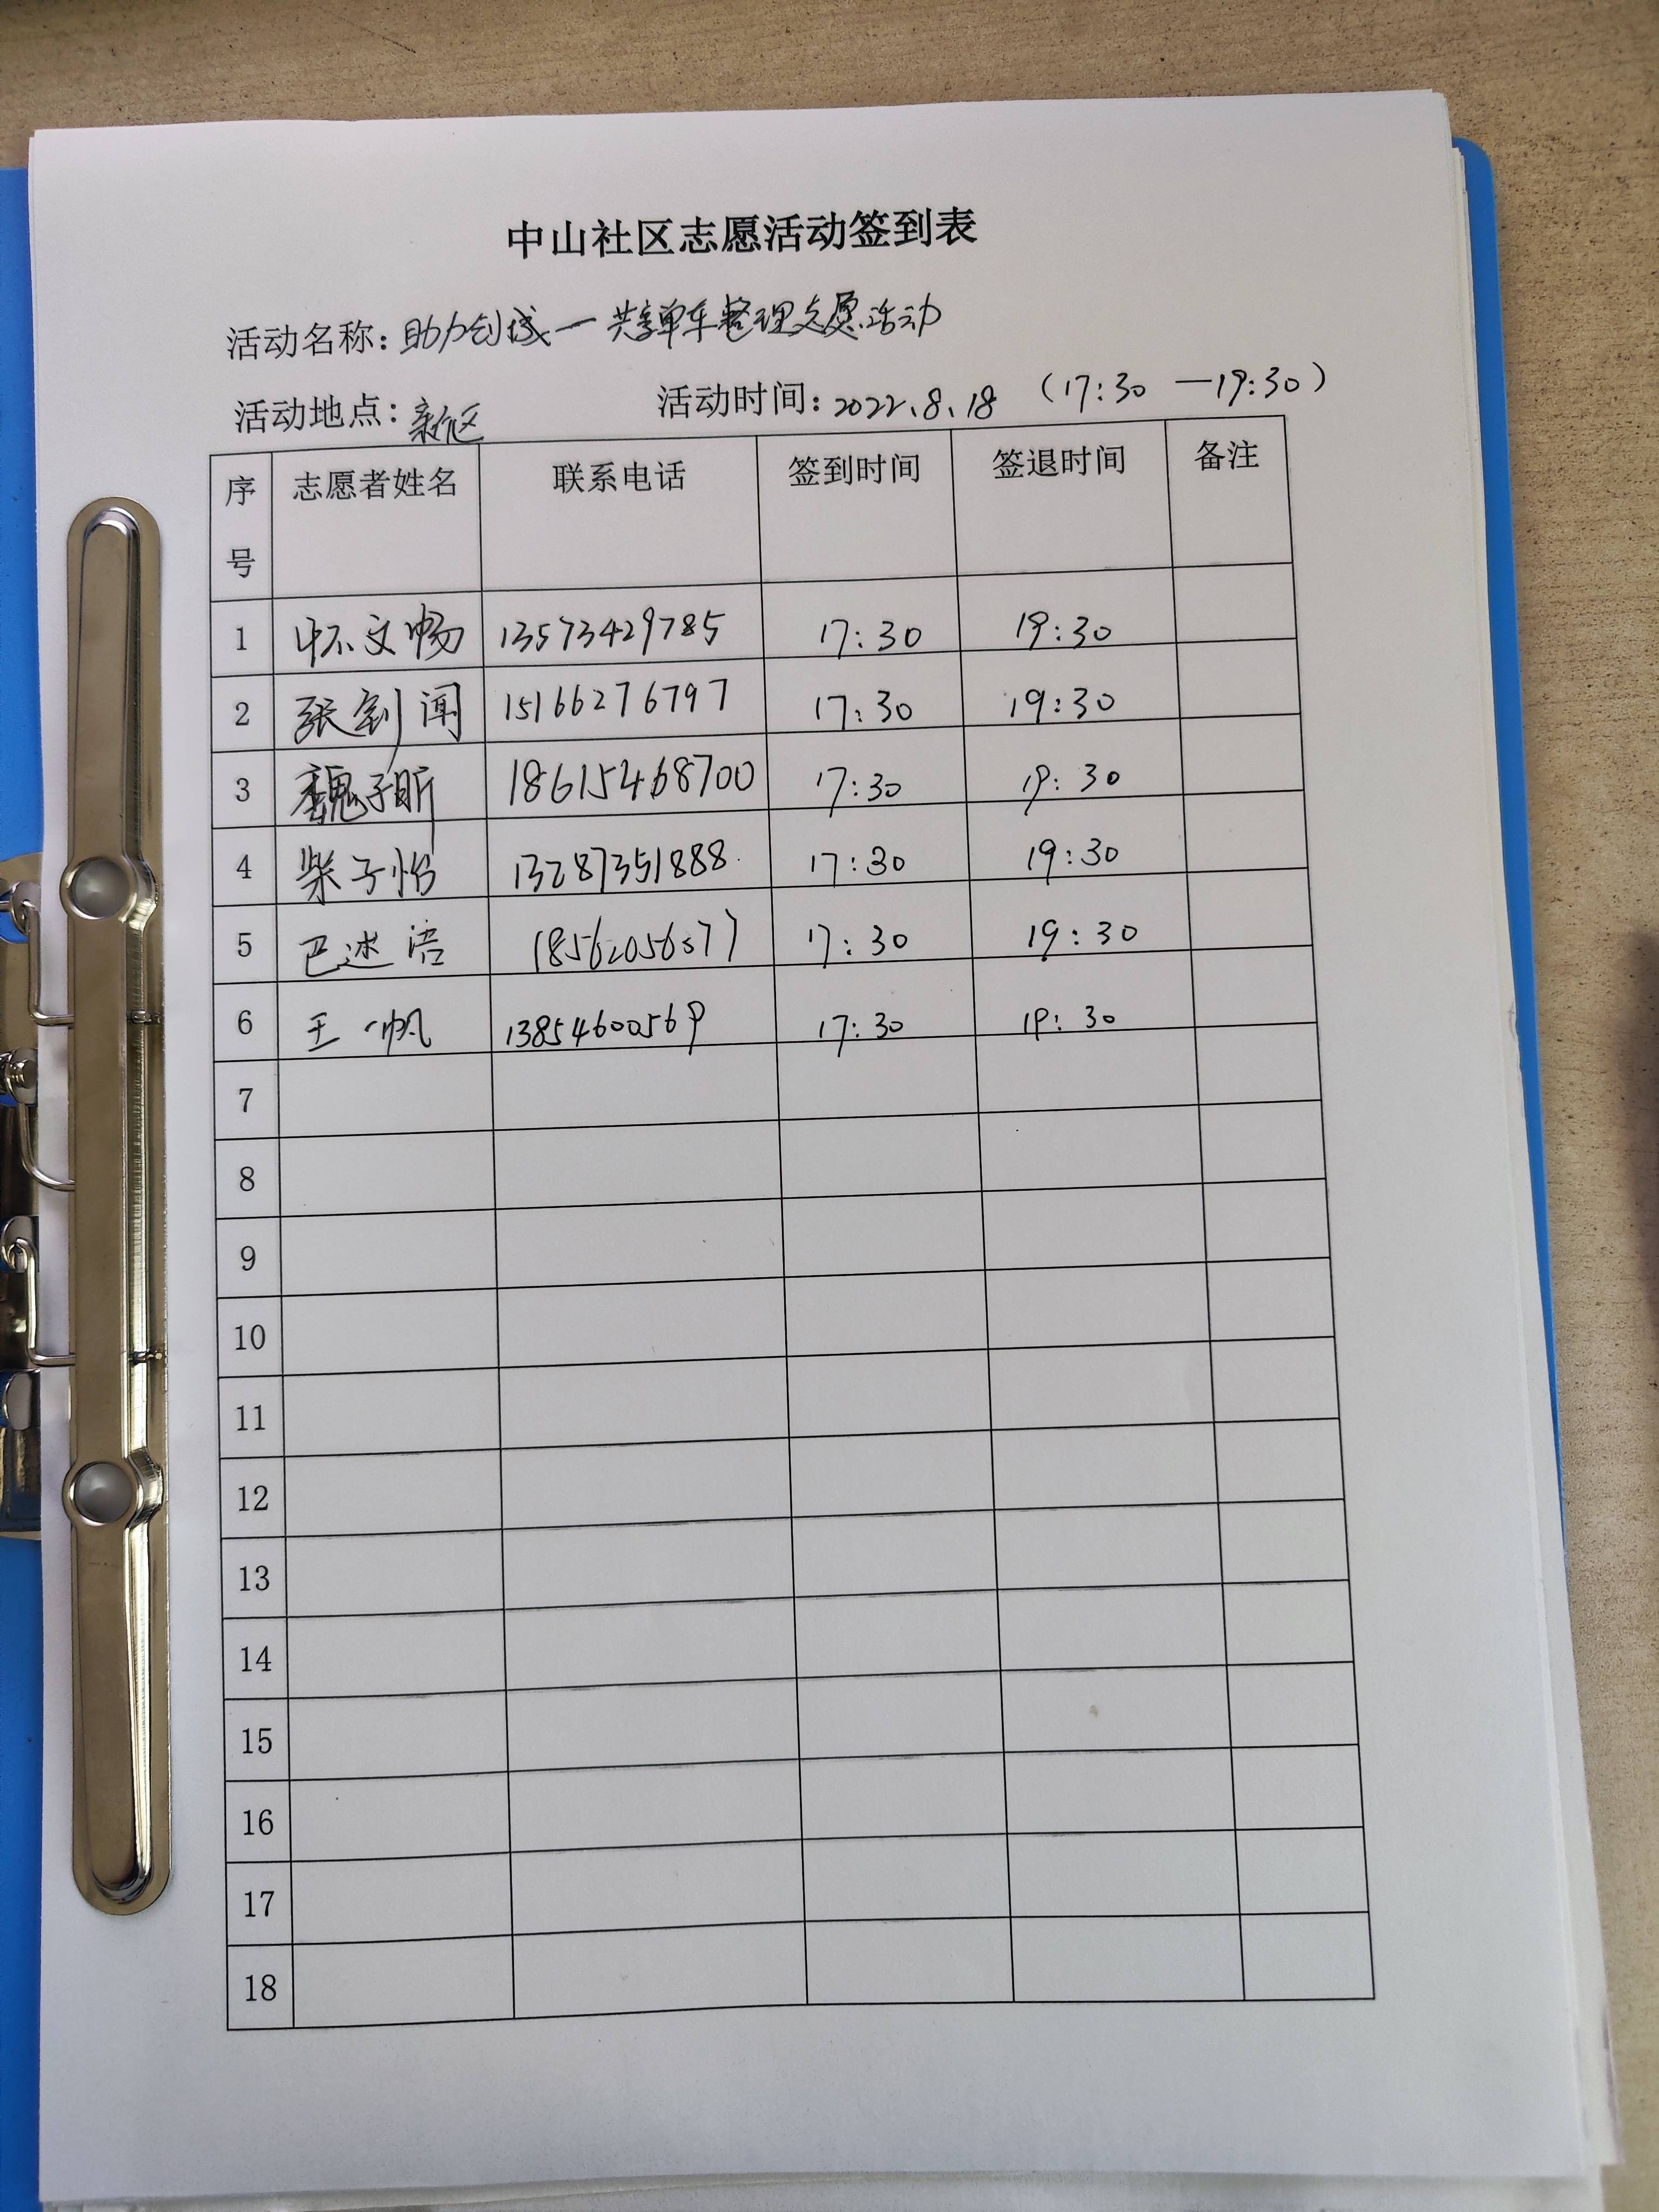 中山社区志愿活动签到表
活动名称：助力创城一共享单车整理志愿活动
活动地点：新区 活动时间：2022.8.18（17:30—19:30）
序号 志愿者姓名 联系电话 签到时间 签退时间 备注
1 怀文畅 13573429785 17:30 19:30
2 张剑闻 15166276797 17:30 19:30
3 魏子昕 18615468700 17:30 19:30
4 柴子怡 13287351888 17:30 19:30
5 巴述语 17:30 19:30
6 王一帆 13854600569 17:30 19:30
7
8
9
10
11
12
13
14
15
16
17
18